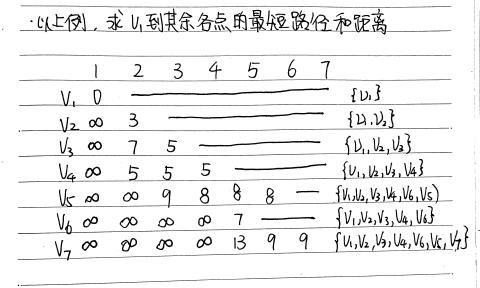 ·以上例，求 V₁到其余各点的最短路径和距离
1 2 3 4 5 6 7
V₁ 0 {V₁}
V₂ ∞ 3 {V₁.V₂}
V₃ ∞ 7 5 {V₁,V₂,V₃}
V₄ ∞ 5 5 5 {V₁,V₂,V₃,V₄}
V₅ ∞ ∞ 9 8 8 8 {V₁,V₂,V₃,V₄,V₆,V₅}
V₆ ∞ ∞ ∞ ∞ 7 {V₁,V₂,V₃,V₄,V₆}
V₇ ∞ ∞ ∞ ∞ 13 9 9 {V₁,V₂,V₃,V₄,V₆,V₅,V₇}